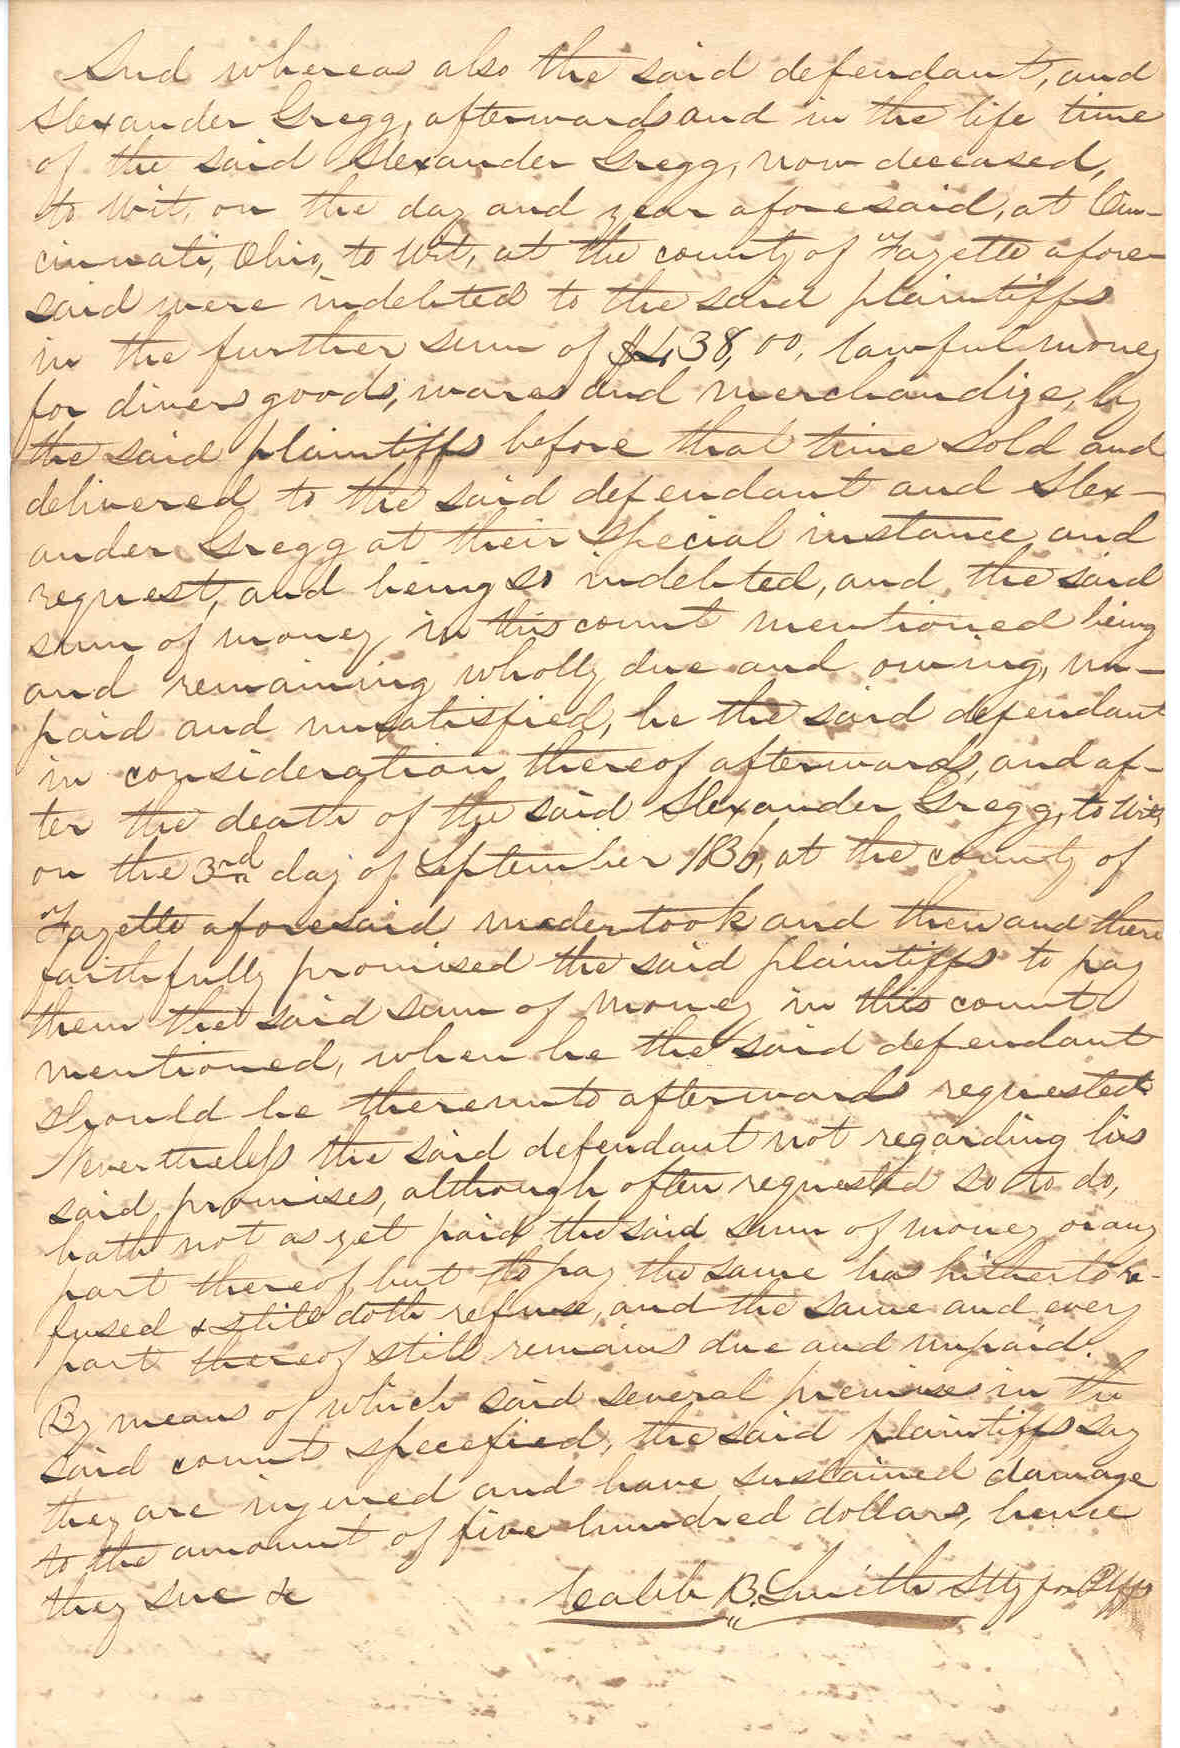 And whereas also the said defendant, and
Alexander Gregg, afterwards and in the life time
of the said Alexander Gregg, now deceased,
to wit, on the day and year aforesaid, at Cin-
cinnati, Ohio, to wit, at the county of Fayette afore-
said were indebted to the said plaintiffs
in the further sum of $438,00, lawful money
for divers goods, wares and merchandize, by
the said plaintiffs before that time sold and
delivered to the said defendant and Alex-
ander Gregg at their special instance and
request, and being so indebted, and the said
sum of money in this count mentioned being
and remaining wholly due and owing, un-
paid and unsatisfied, he the said defendant
in consideration thereof afterwards, and af-
ter the death of the said Alexander Gregg, to wit,
on the 3rd day of September 1836, at the county of
Fayette aforesaid undertook and then and there
faithfully promised the said plaintiffs to pay
them the said sum of money in this count
mentioned, when he the said defendant
should be thereunto afterwards requested.
Nevertheless the said defendant not regarding his
said promises, although often requested so to do,
hath not as yet paid the said sum of money or any
part thereof, but to pay the same has hitherto re-
fused & still doth refuse, and the same and every
part thereof still remains due and unpaid.
By means of which said several premises in the
said count specefied, the said plaintiffs say
they are injured and have sustained damage
to the amount of five hundred dollars, hence
they sue &c
Caleb B. Smith Atty for Plffs